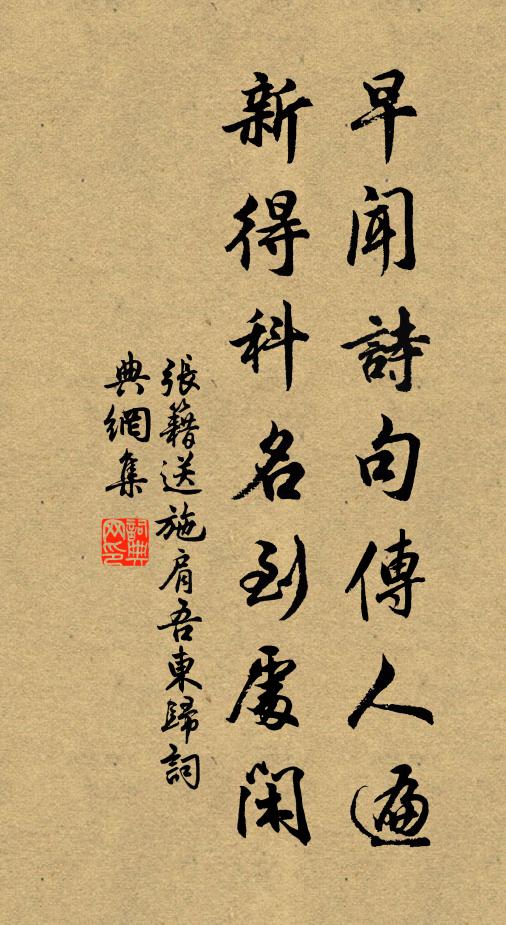 早聞詩句傳人遍
新得科名到處閑
張籍送施肩吾東歸詞
典網集
詞典網印